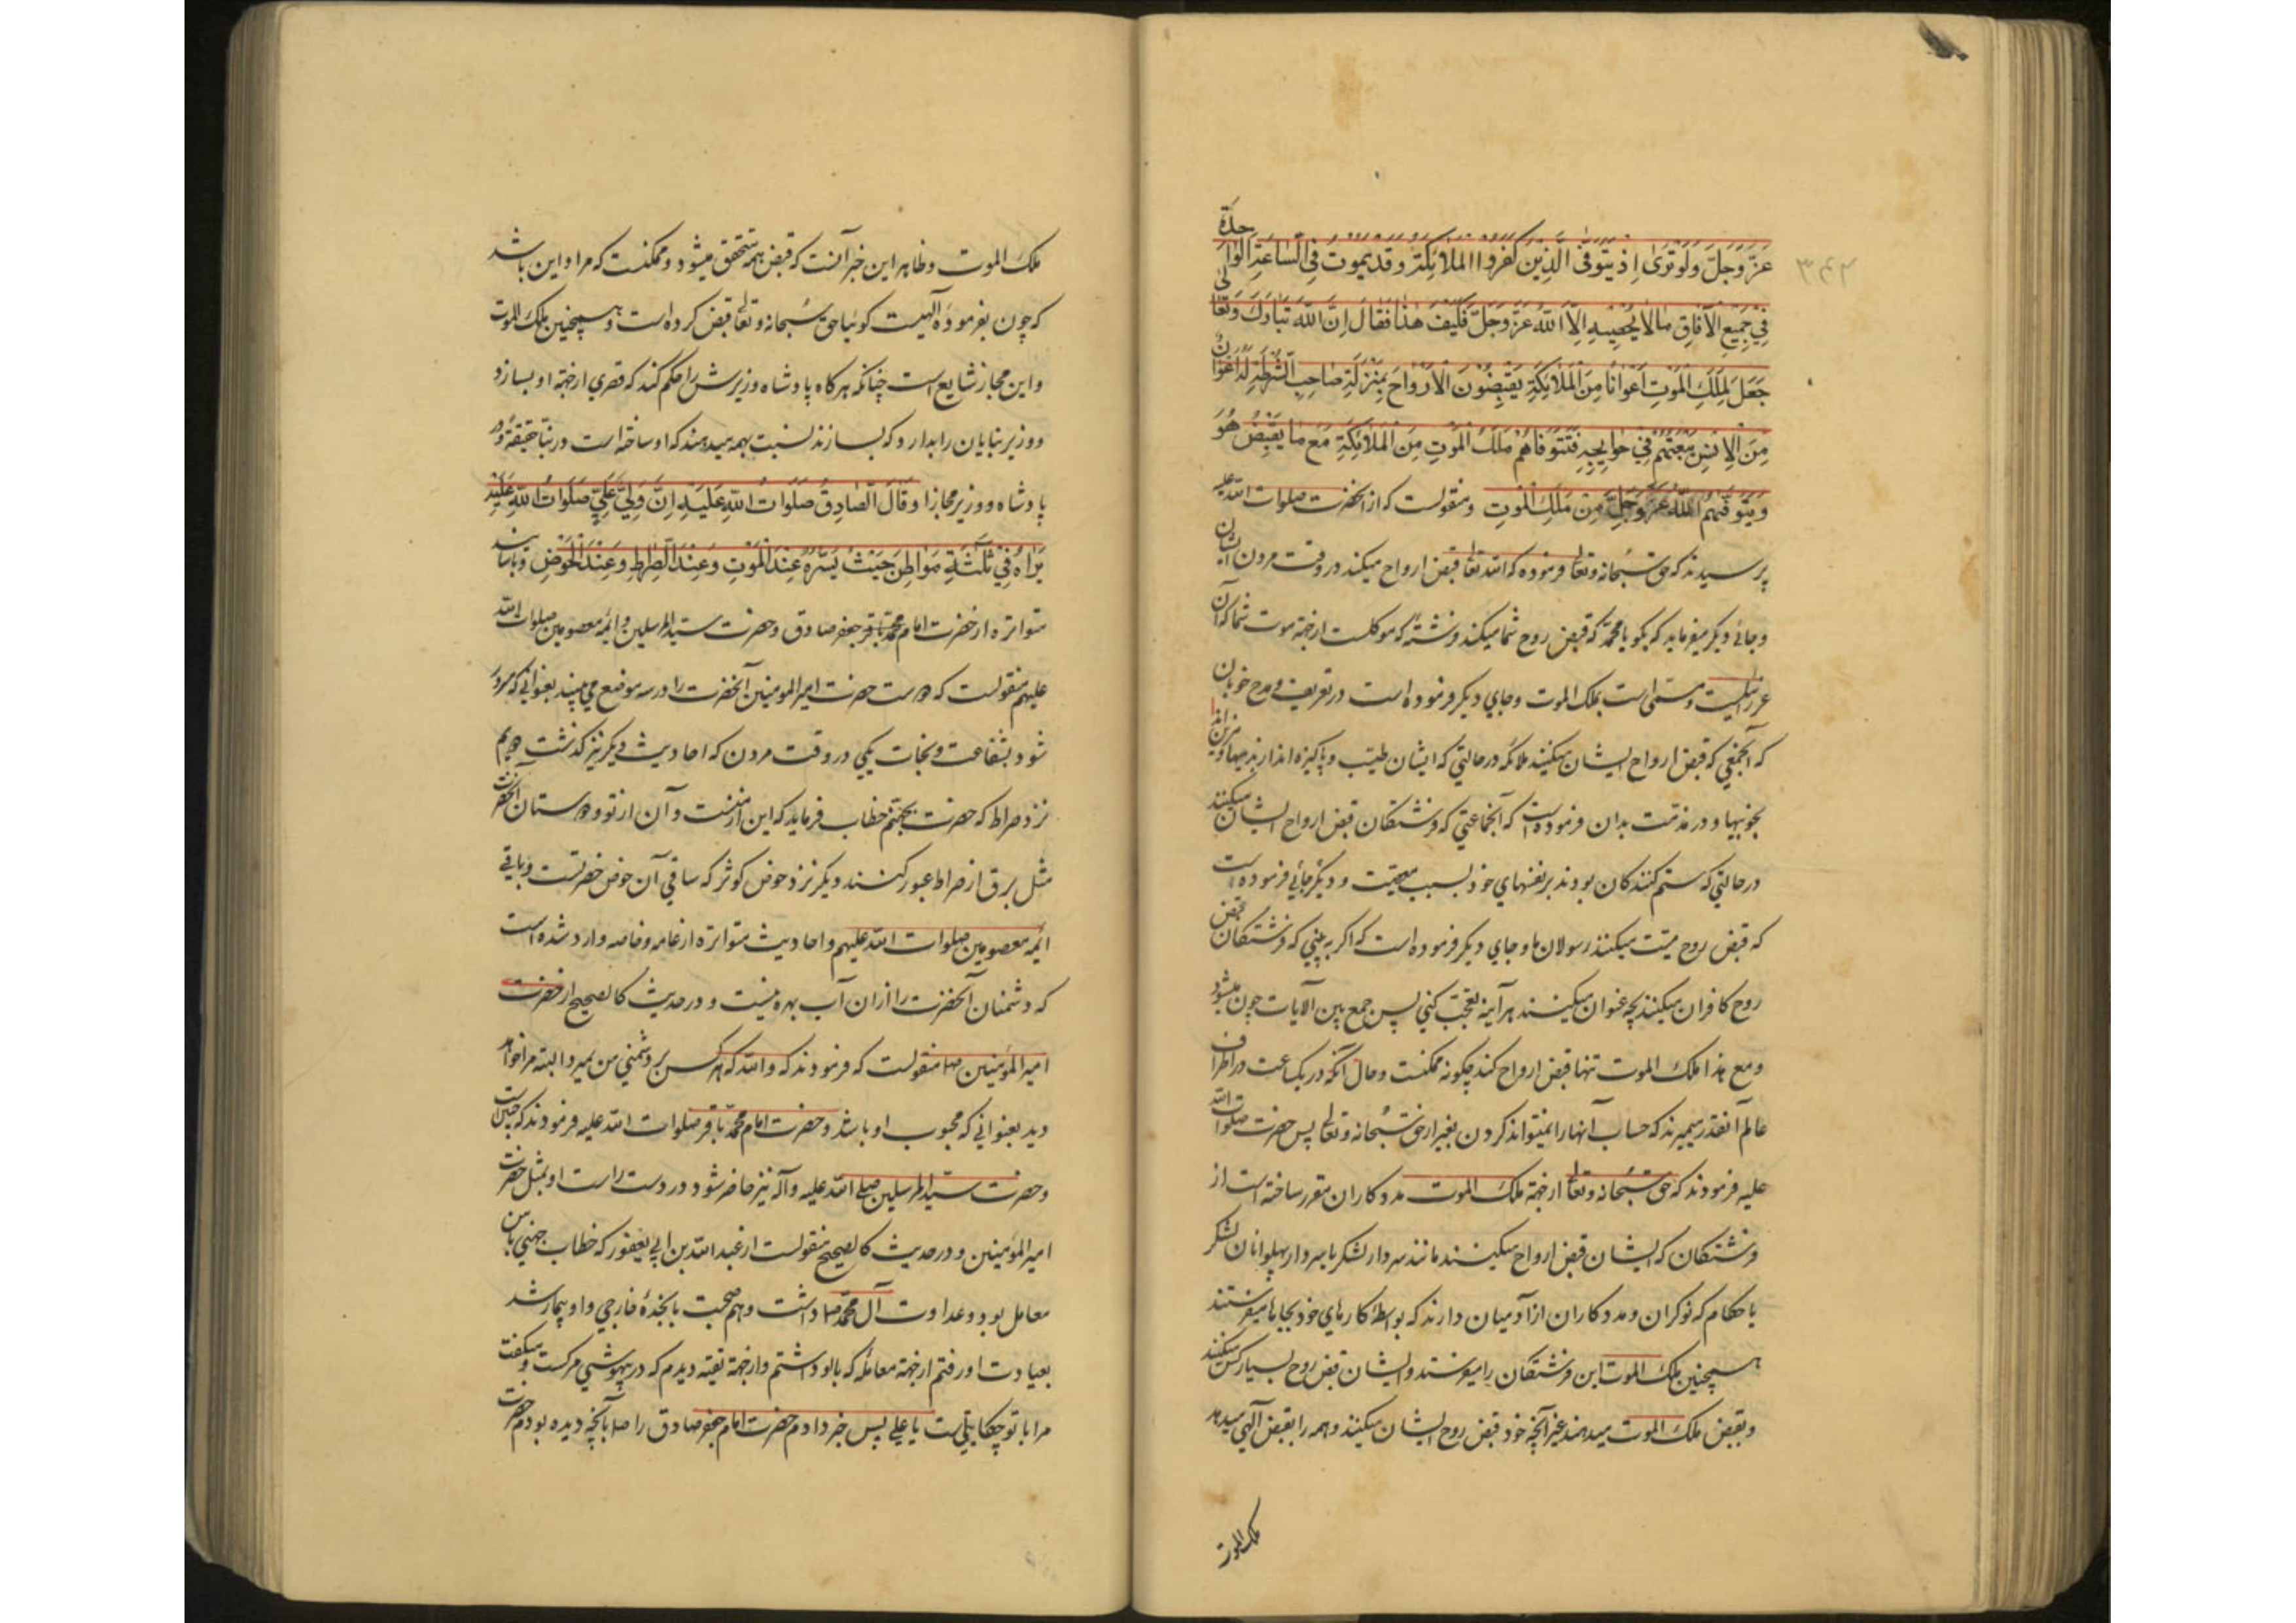 ۳۴۲
عَزَّ وَجَلَّ وَلَوْ تَرَىٰ اِذ يَتَوَفَّى الَّذِينَ كَفَرُوا الملائِكة وقد يموت فِي السّاعَةِ الواحدة
فِي جَميعِ الآفاقِ مالا يُحصيهِ اِلاّ اللّهُ عَزَّ وَجَلَّ فَكَيفَ هٰذا فَقالَ اِنَّ اللّهَ تَبارَكَ وَتَعالىٰ
جَعَلَ لِمَلَكِ المَوتِ اَعوانًا مِنَ المَلائِكَةِ يَقبِضُونَ الاَرواحَ بِمَنزِلَةِ صاحِبِ الشُّرطَةِ لَهُ اَعوانٌ
مِنَ الاِنسِ يَبعَثُهُم فِي حَوايِجِهِ فَتَتَوَفّاهُم مَلَكُ المَوتِ مِنَ المَلائِكَةِ مَعَ ما يَقبِضُ هُوَ
وَيَتَوَفّيهُمُ اللّهُ عَزَّ وَجَلَّ مِن مَلَكِ المَوتِ ومنقولست كه از انحضرت صلوات الله عليه
پرسيدند كه حق سُبحانه وتعالى فرموده كه الله تعالى قبض ارواح ميكند در وقت مردن ايشان
وجائي ديكر ميفرمايد كه بكو يا محمد كه قبض روح شما ميكند فرشتهٔ كه موكلست ازجهة موت شما كه آن
عزرائيلست ومسمّى است بملك الموت وجاي ديكر فرموده است در تعريف ومدح خوبان
كه آنجمعي كه قبض ارواح ايشان ميكنند ملائكه درحالتي كه ايشان طيّب وپاكيزه‌اند از بديها ومزيّن‌اند
بخوبيها ودر مذمّت بدان فرموده است كه آنجماعتي كه فرشتكان قبض ارواح ايشان ميكنند
درحالتي كه ستم كنندكان بودند بر نفسهاي خود بسبب معصيت وديكر جائي فرموده است
كه قبض روح ميّت ميكنند رسولان ما وجاي ديكر فرموده است كه اكر به بيني كه فرشتكان قبض
روح كافران ميكنند بچه عنوان ميكنند هرآينه تعجّب كني پس جمع بين الآيات چون ميشود
ومع هذا ملك الموت تنها قبض ارواح كند چكونه ممكنست وحال آنكه در يكساعت در اطراف
عالم آنقدر ميميرند كه حساب آنها را نميتواند كردن بغير از حق سُبحانه وتعالى پس حضرت صلوات الله
عليه فرمودند كه حق سُبحانه وتعالى ازجهة ملك الموت مددكاران مقرر ساخته است از
فرشتكان كه ايشان قبض ارواح ميكنند مانند سردار لشكر يا سردار پهلوانان لشكر
يا حكام كه نوكران ومددكاران از آدميان دارند كه بواسطهٔ كارهاي خود بجاها ميفرستند
همچنين ملك الموت اين فرشتكان را ميفرستد وايشان قبض روح بسيار كس ميكنند
وبقبض ملك الموت ميدهند غير آنچه خود قبض روح ايشان ميكند وهمه را بقبض آلهي ميدهد
ملك الموت
ملك الموت وظاهر اين خبر آنست كه قبض همه متحقق ميشود وممكنست كه مراد اين باشد
كه چون بفرمودهٔ آلهيست كوئيا حق سُبحانه وتعالى قبض كرده است وهمچنين ملك الموت
واين مجاز شايع است چنانكه هركاه پادشاه وزيرش را حكم كند كه قصري ازجهة او بسازد
ووزير بنايان را بدارد كه بسازند نسبت بهمه ميدهند كه او ساخته است در بنّا حقيقة ودر
پادشاه ووزير مجازا وَقَالَ الصّادِقُ صَلَواتُ اللّهِ عَلَيهِ اِنَّ وَلِيَّ عَلِيٍّ صَلَواتُ اللّهِ عَلَيهِ
يَراهُ فِي ثَلٰثَةِ مَواطِنَ حَيثُ يَسُرُّهُ عِندَ المَوتِ وَعِندَ الصِّراطِ وَعِندَ الحَوضِ وباسانيد
متواتره از حضرت امام محمّد باقر وجعفر صادق وحضرت سيّد المرسلين وائمّه معصومين صلوات الله
عليهم منقولست كه دوست حضرت امير المومنين آنحضرت را در سه موضع مي‌بيند بعنواني كه مسرور
شود بشفاعت ونجات يكي در وقت مردن كه احاديث ديكر نيز كذشت دويم
نزد صراط كه حضرت بجهنّم خطاب فرمايد كه اين از منست وآن از تو ودوستان آنحضرت
مثل برق از صراط عبور كنند ديكر نزد حوض كوثر كه ساقي آن حوض حضرتست وباقي
ائمّه معصومين صلوات الله عليهم واحاديث متواتره از عامه وخاصه وارد شده است
كه دشمنان آنحضرت را از ان آب بهره نيست ودر حديث كالصحيح از حضرت
امير المؤمنين ص منقولست كه فرمودند كه والله كه هر كس بر دشمني من بميرد البته مرا خواهد
ديد بعنواني كه محبوب او باشد وحضرت امام محمّد باقر صلوات الله عليه فرمودند كه چنين است
وحضرت سيّد المرسلين صلى الله عليه وآله نيز حاضر شود در دست راست او بمثل حضرت
امير المؤمنين ودر حديث كالصحيح منقولست از عبد الله بن ابي يعفور كه خطاب جهني با من
معامل بود وعداوت آل محمّد ص داشت وهم صحبت با نجدهٔ خارجي واو بيمار شد
بعيادت او رفتم ازجهة معاملهٔ كه با او داشتم وازجهة تقيّه ديدم كه در بيهوشي مركست وميكفت
مرا با تو چكار يست يا علي پس خبر دادم حضرت امام جعفر صادق را ص بآنچه ديده بودم حضرت